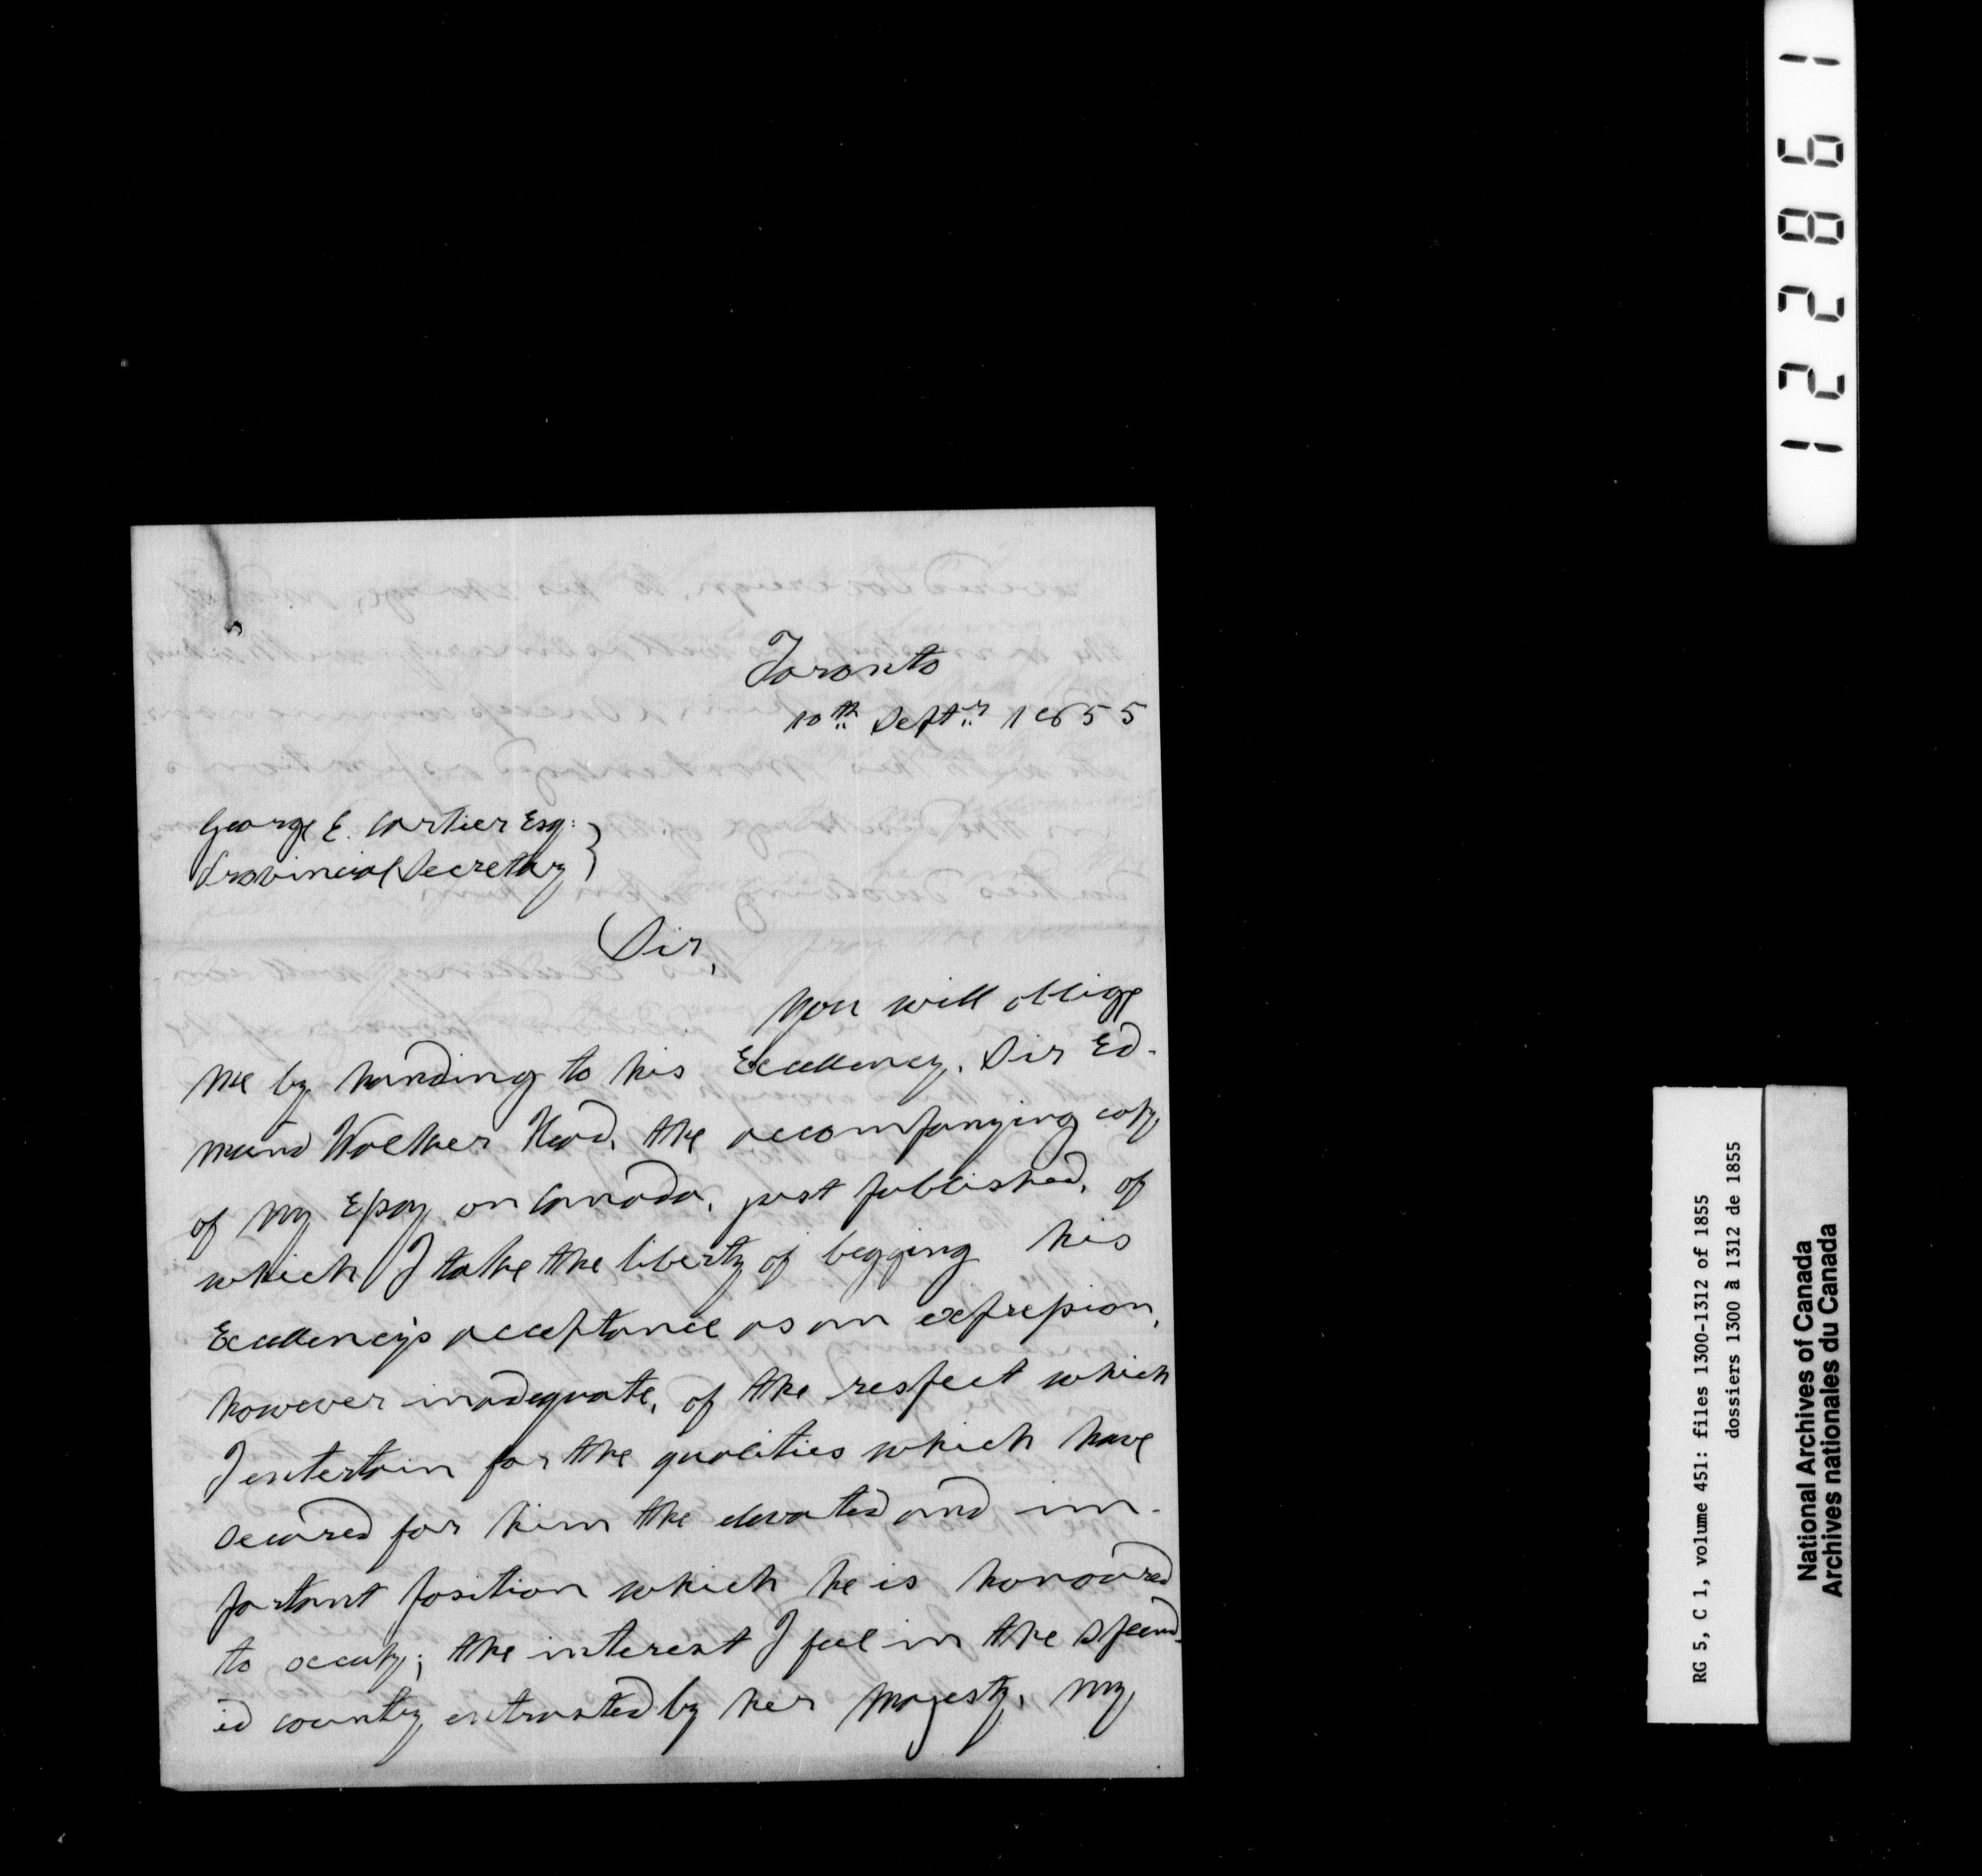 Toronto
10th Septr 1855
George E. Cartier Esq:
Provincial Secretary
Sir,
You will oblige
me by handing to his Excellency, Sir Ed-
mund Walker Head, the accompanying copy
of my Essay on Canada, just published, of
which I take the liberty of begging his
Excellency's acceptance as an expression,
however inadequate, of the respect which
I entertain for the qualities which have
secured for him the elevated and im-
portant position which he is honoured
to occupy; the interest I feel in the splend-
id country entrusted by her Majesty, my
122861
RG 5, C 1, volume 451: files 1300-1312 of 1855
dossiers 1300 à 1312 de 1855
National Archives of Canada
Archives nationales du Canada